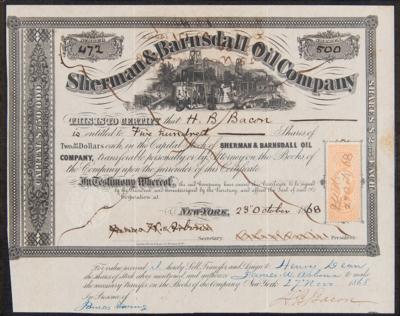 NUMBER
472
SHARES
500
Sherman & Barnsdall Oil Company
CAPITAL $250,000
SHARES $2.50 EACH
THIS IS TO CERTIFY that H. B. Bacon
is entitled to Five hundred Shares of
Two Dollars each, in the Capital Stock of SHERMAN & BARNSDALL OIL
COMPANY, transferable personally or by Attorney on the Books of
the Company upon the surrender of this Certificate
In Testimony Whereof, the said Company have caused this Certificate to be signed
by their President and
Corporation at
NEW-YORK, 23 October 1868
Secretary
President
For value received I hereby Sell, Transfer and Assign to Henry Dean
the shares of Stock within mentioned and authorize James to make
the necessary transfer on the Books of the Company New York 27 Nov 1868
In Presence of
H B Bacon